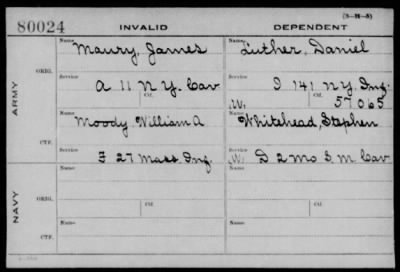 (3-M-5)
80024 INVALID DEPENDENT
Name Maury, James Name Luther, Daniel
ARMY ORIG. Service A 11 N.Y. Cav Ctf. Service I 141 N.Y. Inf. Ctf. 57065
W.
Name Moody William A Name Whitehead, Stephen
CTF. Service F 27 Mass Inf. Service W. D 2 Mo S. M. Cav
NAVY ORIG. Name Ctf. Name Ctf.
CTF. Name Name